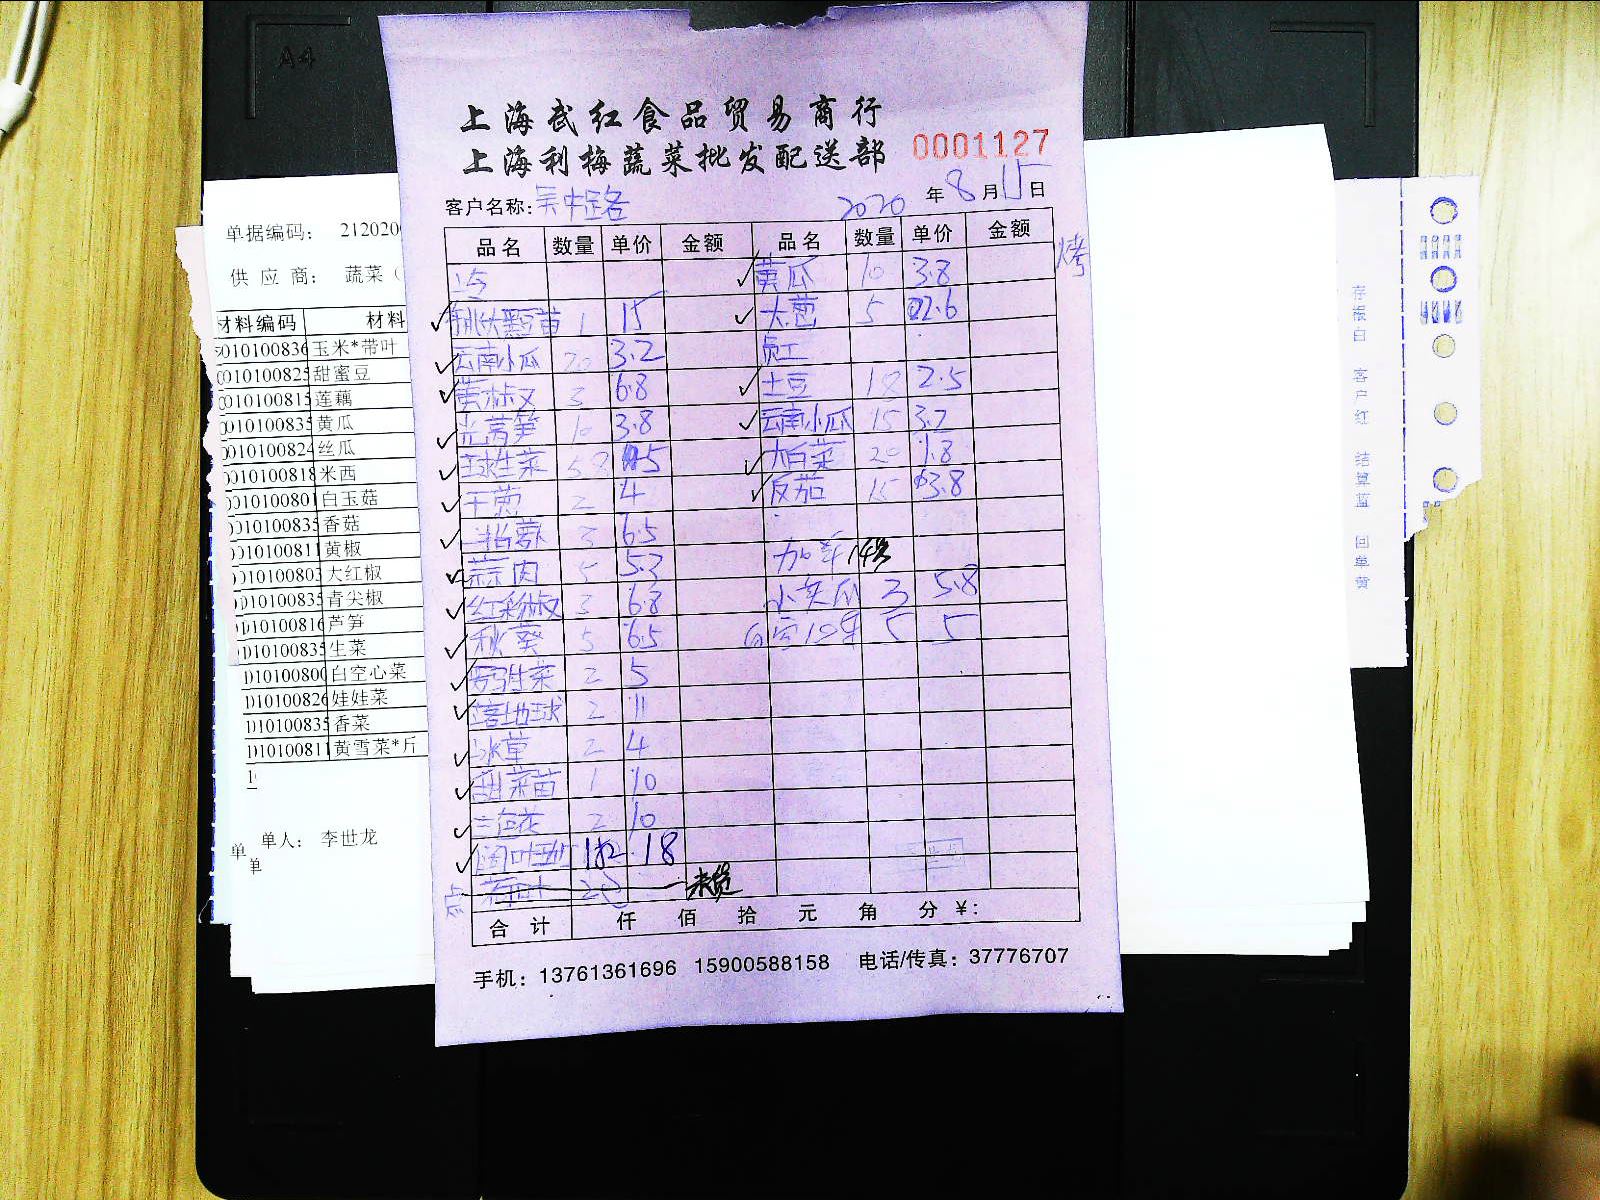 A4
上海武红食品贸易商行
上海利梅蔬菜批发配送部
0001127
客户名称：吴中路
2020 年 8 月 15 日
品名 数量 单价 金额 品名 数量 单价 金额
黄瓜 10 3.8
烤
1 15 大葱 5 2.6
云南小瓜 20 3.2 员工
黄椒 3 6.8 土豆 18 2.5
光莴笋 10 3.8 云南小瓜 15 3.2
球生菜 5 大白菜 20 1.8
干葱 2 4 番茄 15 3.8
3 6.5
蒜肉 5 5.3 加单
红彩椒 3 6.8 小黄瓜 3 5.8
秋葵 5 6.5 5 5
生菜 2 5
2 11
冰草 2 4
甜菜苗 1 10
三色花 2 10
18
点 20 未货
合计 仟 佰 拾 元 角 分 ¥：
手机：13761361696 15900588158 电话/传真：37776707
单据编码： 212020
供应商： 蔬菜（
材料编码 材料
010100836 玉米*带叶
010100825 甜蜜豆
010100815 莲藕
010100835 黄瓜
010100824 丝瓜
010100818 米西
010100801 白玉菇
010100835 香菇
010100811 黄椒
010100803 大红椒
010100835 青尖椒
010100816 芦笋
010100835 生菜
010100800 白空心菜
010100826 娃娃菜
010100835 香菜
010100811 黄雪菜*斤
单人： 李世龙
单
单
存根白 客户红 结算蓝 回单黄